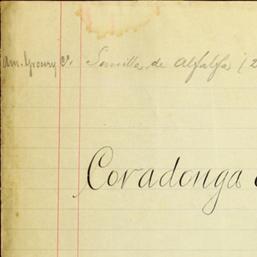 Am. Grocery C. Semilla de Alfalfa (2
Coradonga